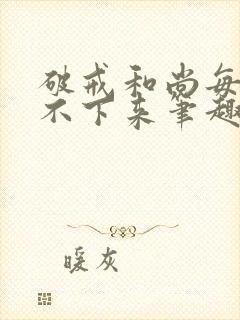 破戒和尚每
不下来笔趣
暖灰